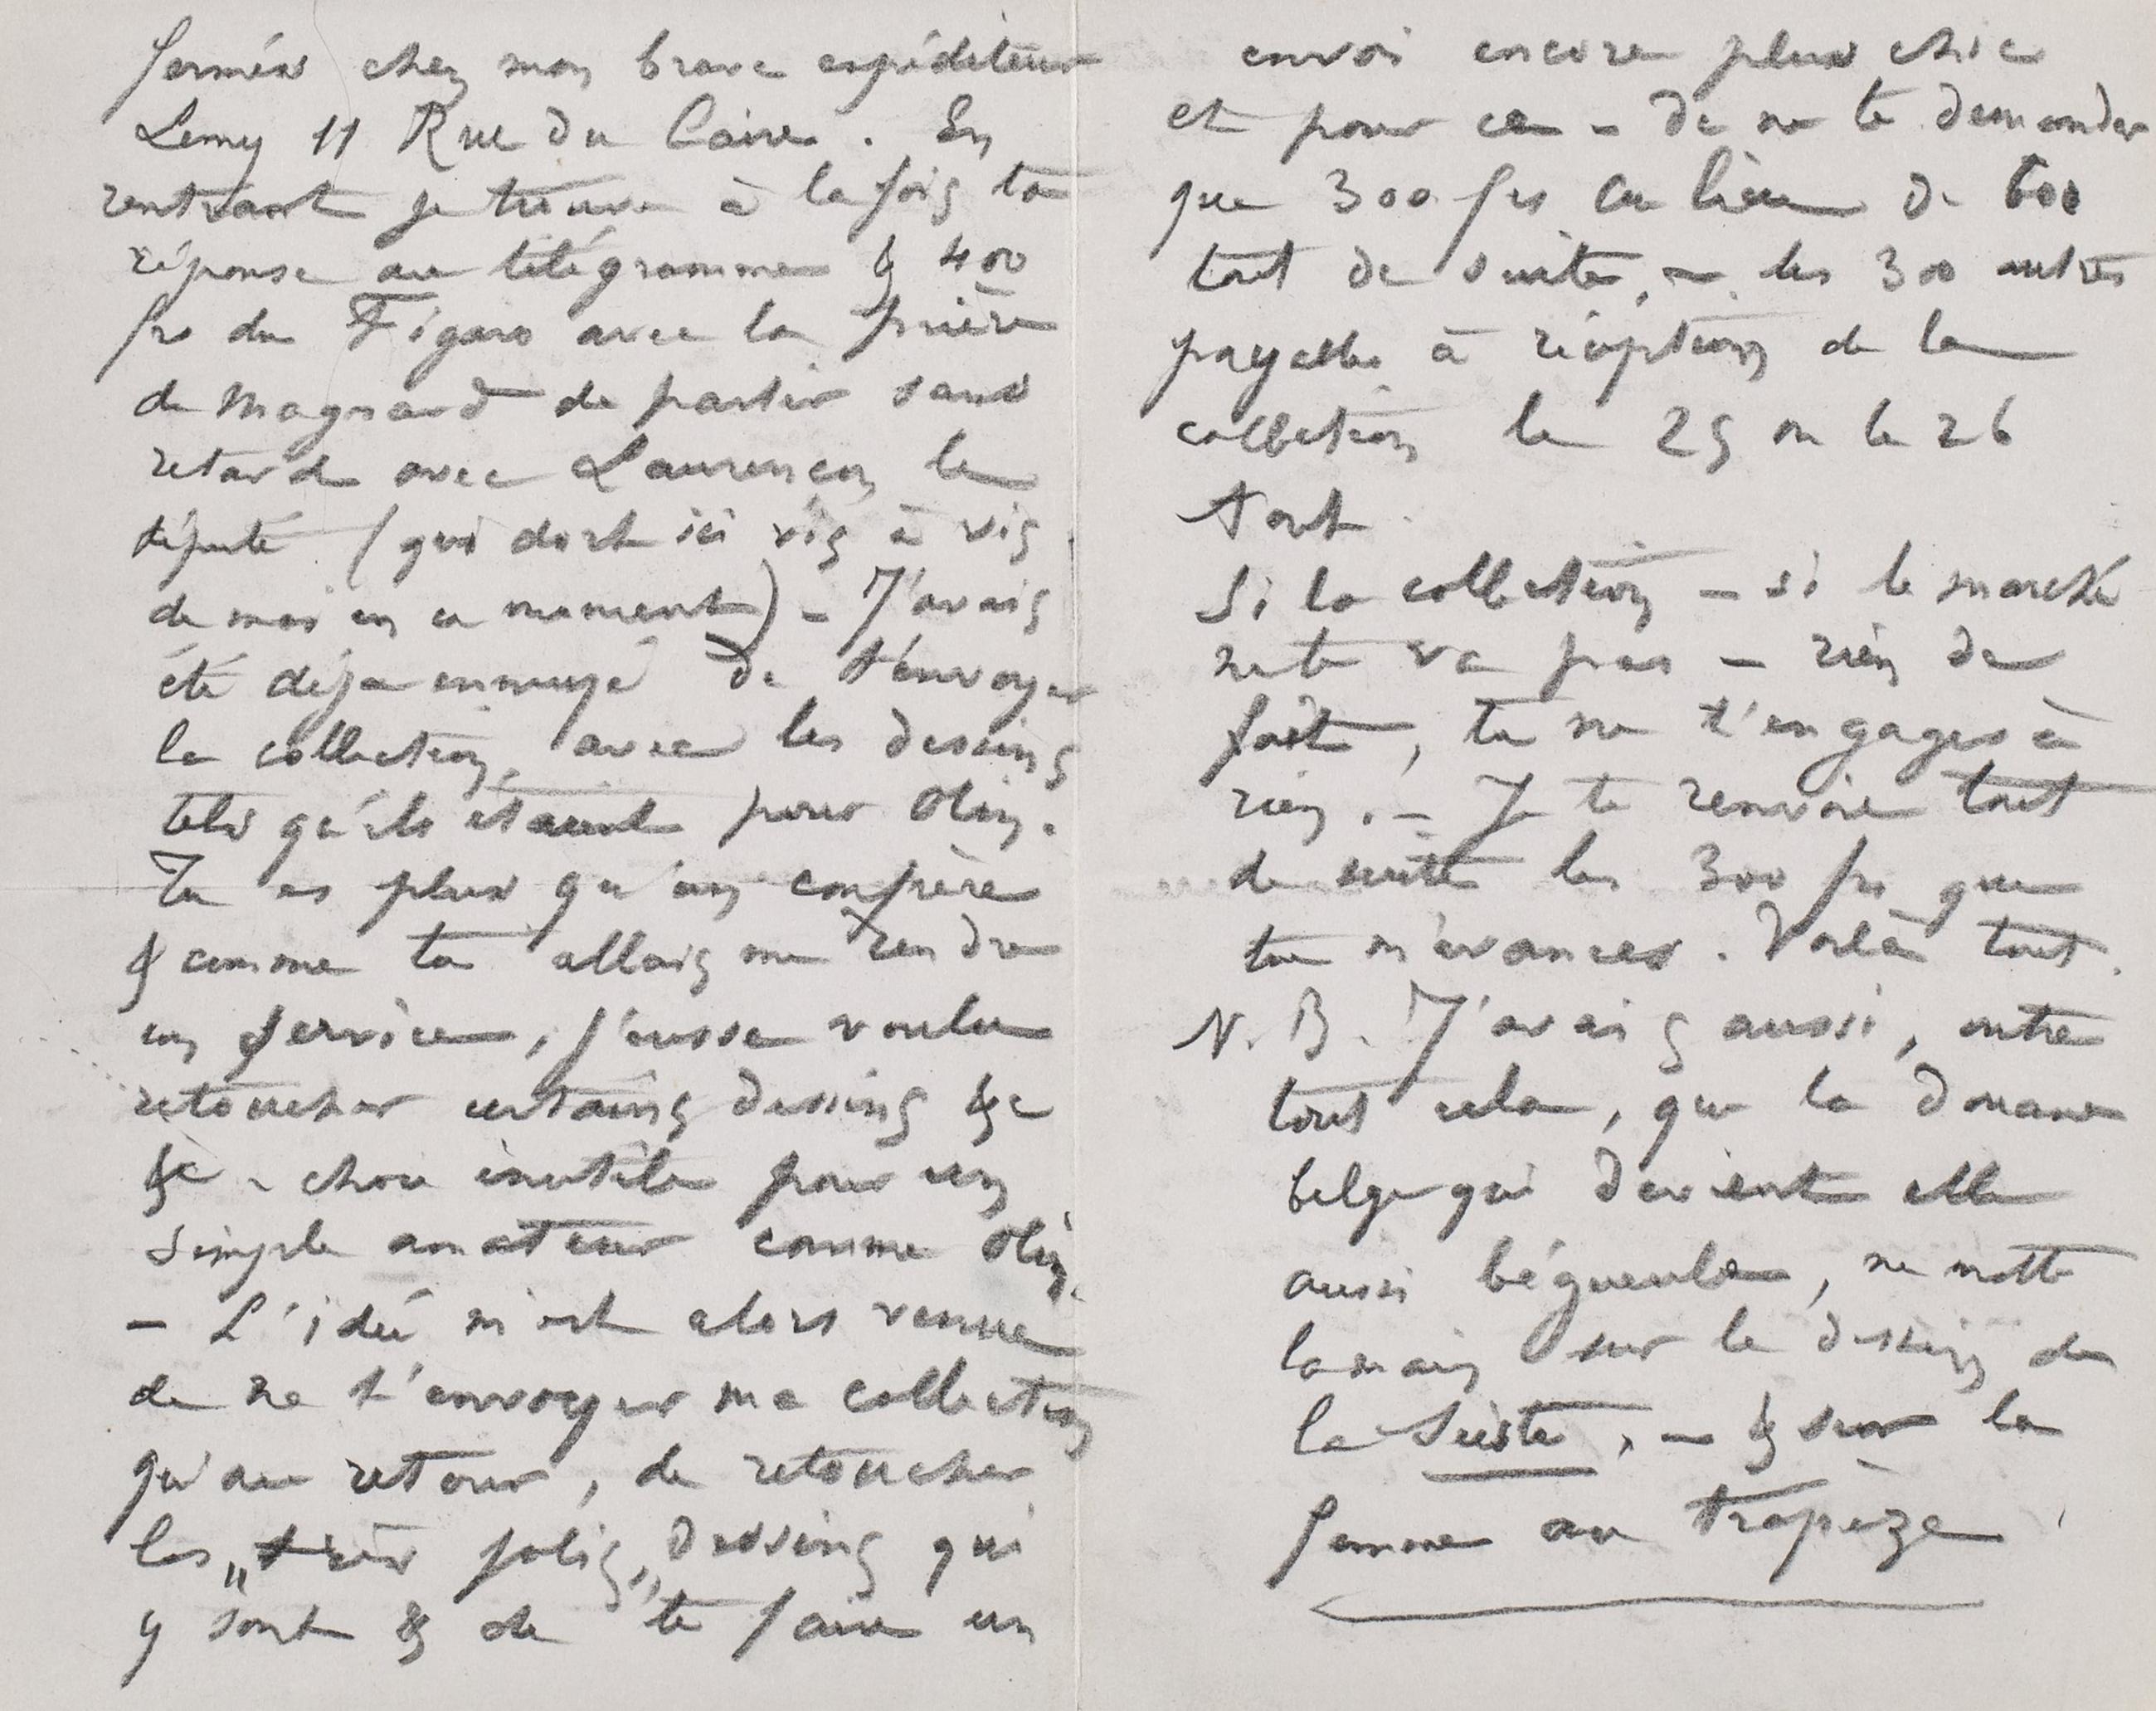 fermés chez mon brave expéditeur
Lemy 11 Rue du Caire. En
rentrant je trouve à la fois ta
réponse au télégramme & 400
frs du Figaro avec la prière
de Magnard de partir sans
retard avec Laurençon le
député (qui dort ici vis à vis
de moi en ce moment) – J'avais
été déja ennuyé de t'envoyer
la collection, avec les dessins
tels qu'ils étaient pour Olin.
Tu es plus qu'un confrère
& comme tu allais me rendre
un service, j'eusse voulu
retoucher certains dessins &c
&c – chose inutile pour un
simple amateur comme Olin.
– L'idée m'est alors venue
de ne t'envoyer ma collection
qu'au retour, de retoucher
les „très jolis„ dessins qui
y sont & de te faire un
envoi encore plus chic
et pour ce – de ne te demander
que 300 frs au lieu de 600
tout de suite, – les 300 autres
payables à réception de la
collection le 25 ou le 26
Aout.
Si la collection – si le marché
ne te va pas – rien de
fait, tu ne t'engages à
rien. – Je te renvoie tout
de suite les 300 frs que
tu m'avances. Voilà tout.
N. B. J'avais aussi, outre
tout cela, que la douane
belge qui devient elle
aussi bégueule, ne mette
la main sur le dessin de
la Suiste, – & sur la
femme au trapèze